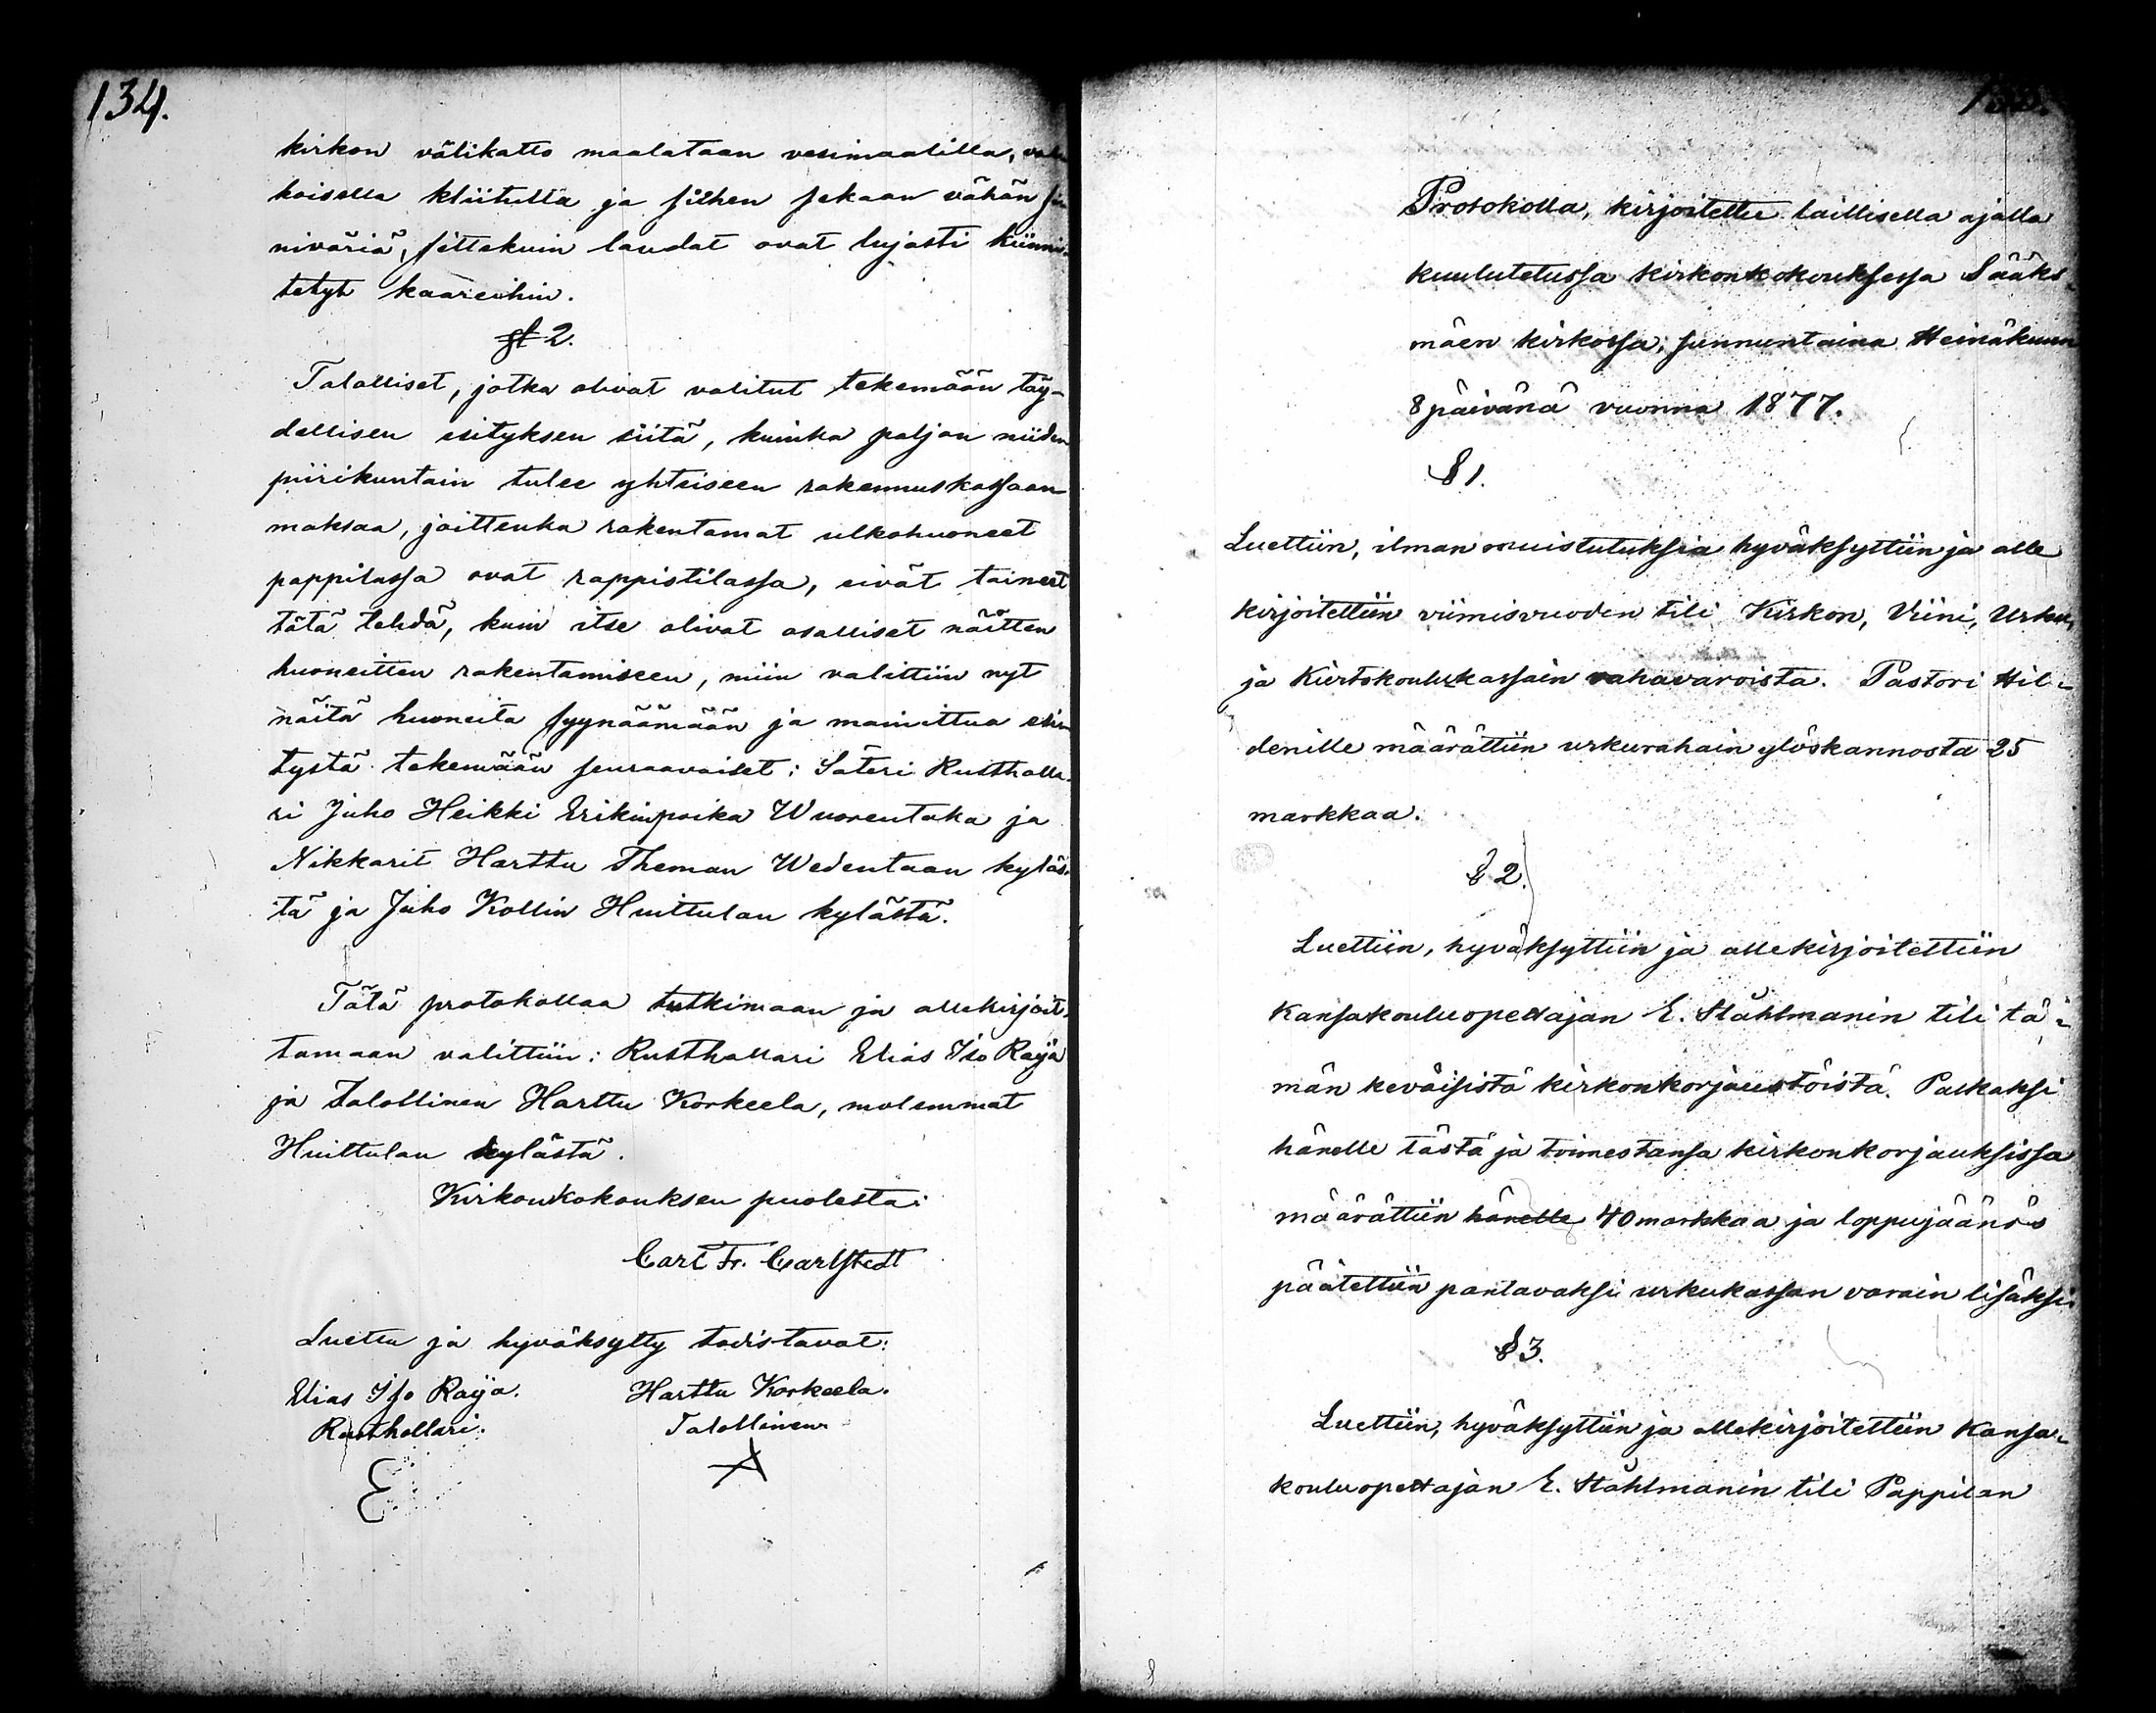 134.
kirkon välikatto maalataan vesimaalilla, val-
koisella kliitulla ja siihen sekaan vähän si-
niväriä, sittekuin laudat ovat lujasti kiinni-
tetyt kaareihin.
§ 2.
Talolliset, jotka olivat valitut tekemään täy-
dellisen esityksen siitä, kuinka paljon niiden
piirikuntain tulee yhteiseen rakennuskassaan
maksaa, joittenka rakentamat ulkohuoneet
pappilassa ovat rappiotilassa, eivät taineet
tätä tehdä, kuin itse olivat osalliset näitten
huoneitten rakentamiseen, niin valittiin nyt
näitä huoneita syynäämään ja mainittua esi-
tystä tekemään seuraavaiset: Säteri Rusthalla-
ri Juho Heikki Erikinpoika Wuorentaka ja
Nikkarit Harttu Theman Wedentaan kyläs-
tä ja Juho Kollin Huittulan kylästä.
Tätä protokollaa tutkimaan ja allekirjoit-
tamaan valittiin: Rusthallari Elias Iso Raijä
ja talollinen Harttu Korkeela, molemmat
Huittulan kylästä.
Kirkonkokouksen puolesta:
Carl Fr. Carlstedt
Luettu ja hyväksytty todistavat:
Elias Iso Raija. Harttu Korkeela.
Rusthollari. Talollinen
135.
Protokolla, kirjoitettu laillisella ajalla
kuulutetussa kirkonkokouksessa Sääks-
mäen kirkossa, sunnuntaina Heinäkuun
8 päivänä vuonna 1877.
§ 1.
Luettiin, ilman muistutuksia hyväksyttiin ja alle
kirjoitettiin viimisvuoden tili Kirkon, Viini, Urku,
ja Kiertokoulukassain rahavaroista. Pastori Hil-
denille määrättiin urkurahain ylöskannosta 25
markkaa.
§ 2.
Luettiin, hyväksyttiin ja allekirjoitettiin
Kansakouluopettajan E. Ståhlmanin tili tä-
män keväisistä kirkonkorjaustöistä. Palkaksi
hänelle tästä ja toimestansa kirkonkorjauksissa
määrättiin hänelle 40 markkaa ja loppujäänös
päätettiin pantavaksi urkukassan varain lisäksi.
§ 3.
Luettiin, hyväksyttiin ja allekirjoitettiin Kansa-
kouluopettajan E. Ståhlmanin tili Pappilan